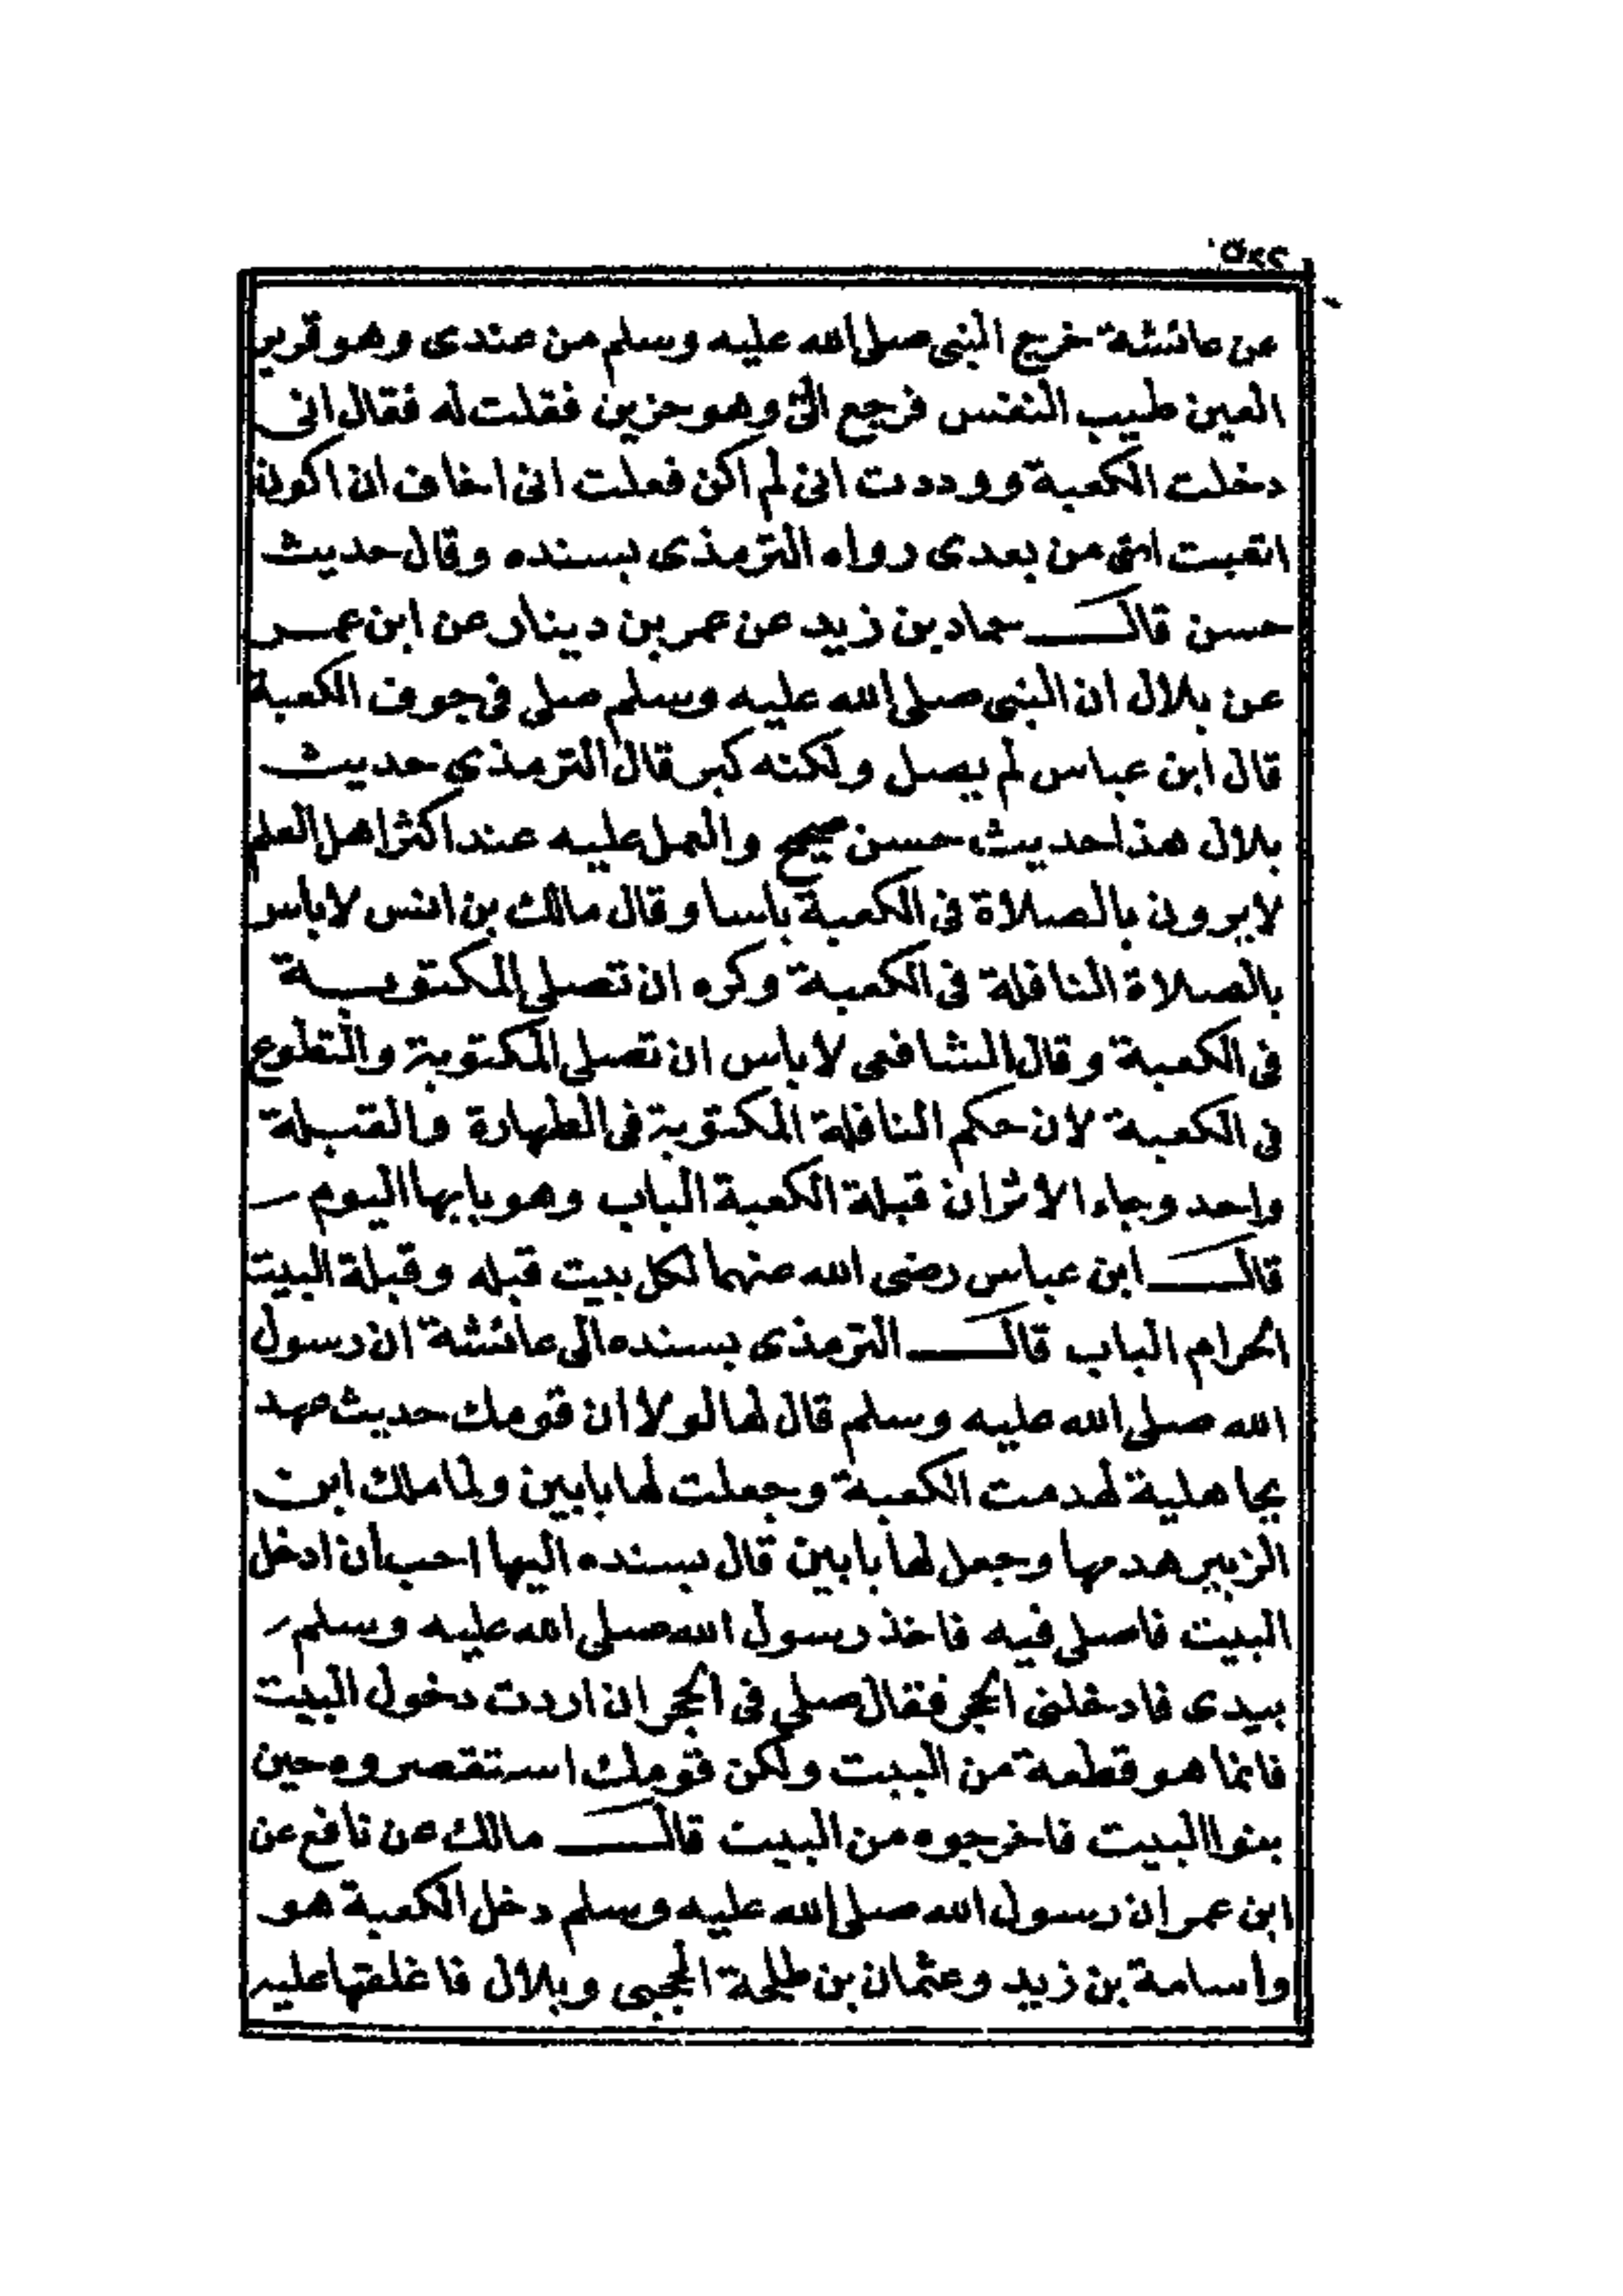 عن عائشة خرج النبى صلى الله عليه وسلم من عندى وهو قرير
العين طيب النفس فرجع الىّ وهو حزين فقلت له فقال انى
دخلت الكعبة ووددت انى لم اكن فعلت انى اخاف ان اكون
اتعبت امتى من بعدى رواه الترمذى بسنده وقال حديث
حسن قالـــ حماد بن زيد عن عمر بن دينار عن ابن عمر
عن بلال ان النبى صلى الله عليه وسلم صلى فى جوف الكعبة
قال ابن عباس لم يصل ولكنه كبر قال الترمذى حديث
بلال هذا حديث حسن صحيح والعمل عليه عند اكثر اهل العلم
لا يرون بالصلاة فى الكعبة باسا وقال مالك بن انس لا باس
بالصلاة النافلة فى الكعبة وكره ان تصلى المكتوبـة
فى الكعبة وقال الشافعى لا باس ان تصلى المكتوبة والتطوع
فى الكعبة لان حكم النافلة المكتوبة فى الطهارة والقبـلة
واحد وجاء الاثر ان قبلة الكعبة الباب وهو بابها اليوم
قالـــ ابن عباس رضى الله عنهما لكل بيت قبله وقبلة البيت
الحرام الباب قالـــ الترمذى بسنده الى عائشة ان رسول
الله صلى الله عليه وسلم قال لها لولا ان قومك حديث عهد
بجاهلية لهدمت الكعبة وجعلت لها بابين ولما ملك ابن
الزبير هدمها وجعل لها بابين قال بسنده اليها احب ان ادخل
البيت فاصلى فيه فاخذ رسول الله صلى الله عليه وسلم
بيدى فادخلنى الحجر فقال صلى فى الحجر ان اردت دخول البيت
فانما هو قطعة من البيت ولكن قومك استقصروه حين
بنوا البيت فاخرجوه من البيت قالـــ مالك عن نافع عن
ابن عمر ان رسول الله صلى الله عليه وسلم دخل الكعبة هو
واسامة بن زيد وعثمان بن طلحة الحجبى وبلال فاغلقها عليه